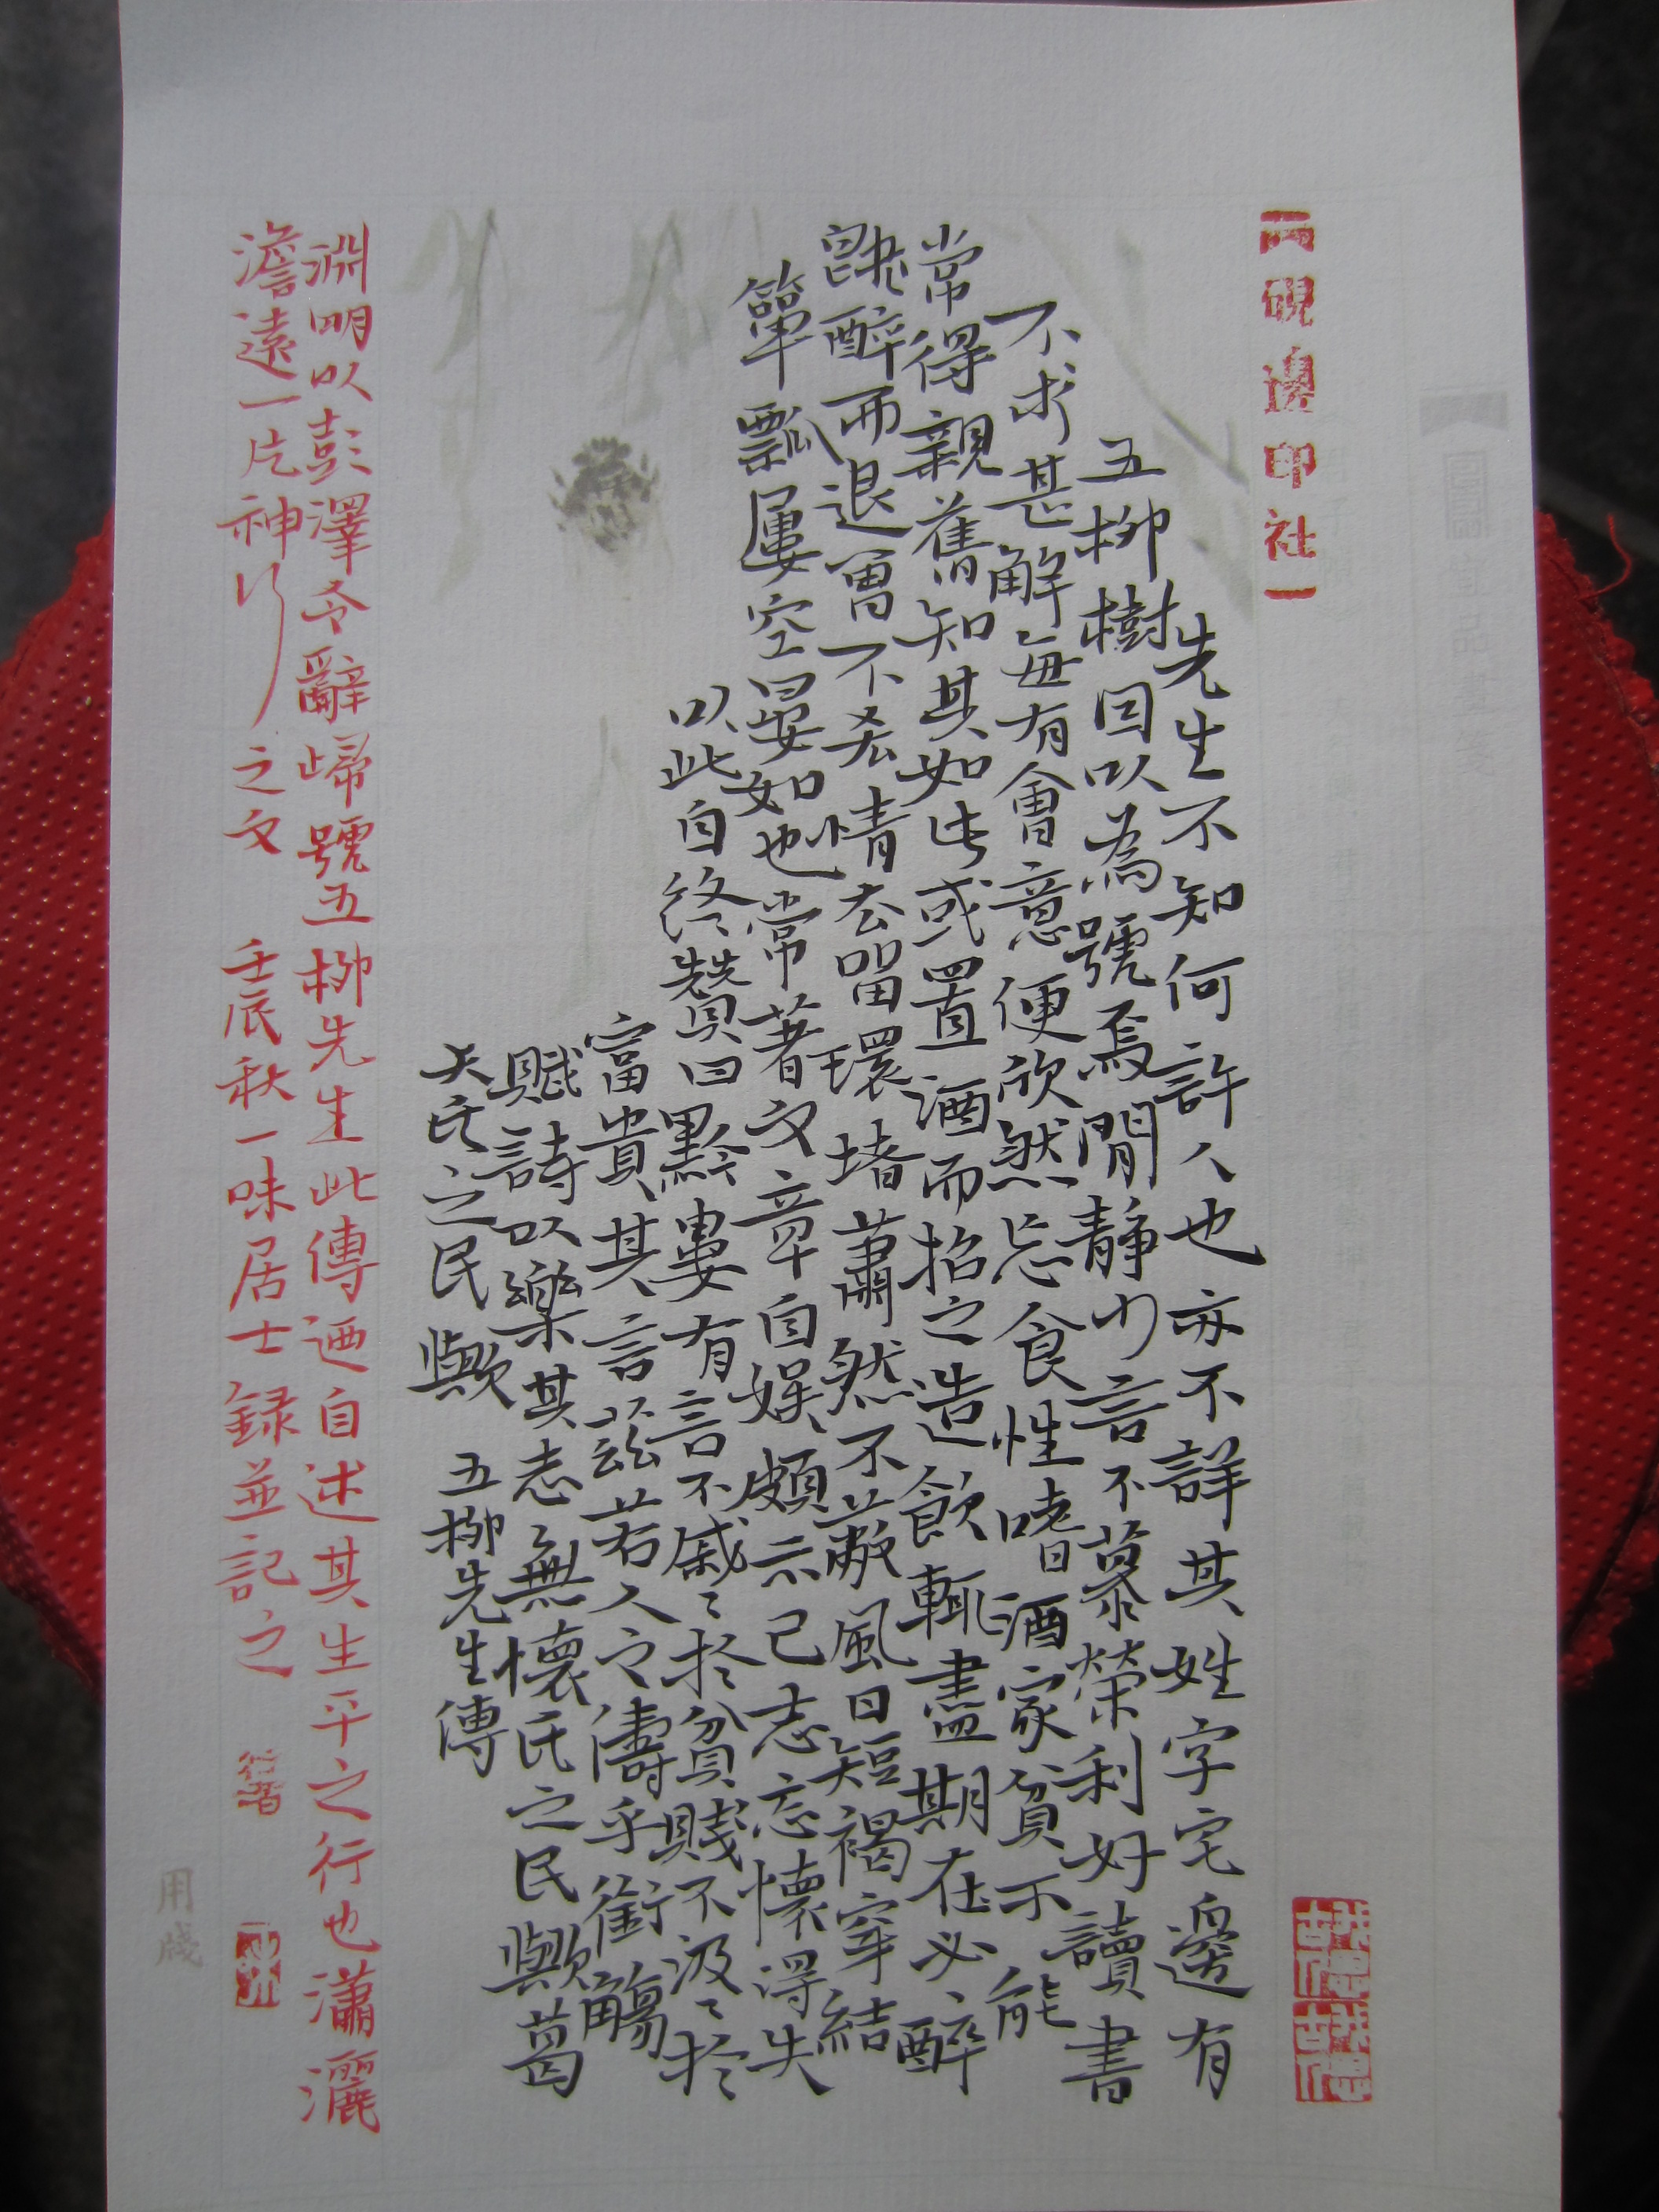 硯邊印社
先生不知何許人也亦不詳其姓字宅邊有
五柳樹因以為號焉閒靜少言不慕榮利好讀書
不求甚解每有會意便欣然忘食性嗜酒家貧不能
常得親舊知其如此或置酒而招之造飲輒盡期在必醉
既醉而退曾不吝情去留環堵蕭然不蔽風日短褐穿結
簞瓢屢空晏如也常著文章自娛頗示己志忘懷得失
以此自終贊曰黔婁有言不戚〻於貧賤不汲〻於
富貴其言茲若人之儔乎銜觴
賦詩以樂其志無懷氏之民歟葛
天氏之民歟 五柳先生傳
淵明以彭澤令辭歸號五柳先生此傳迺自述其生平之行也瀟灑
澹遠一片神行之文 壬辰秋一味居士録並記之
用箋